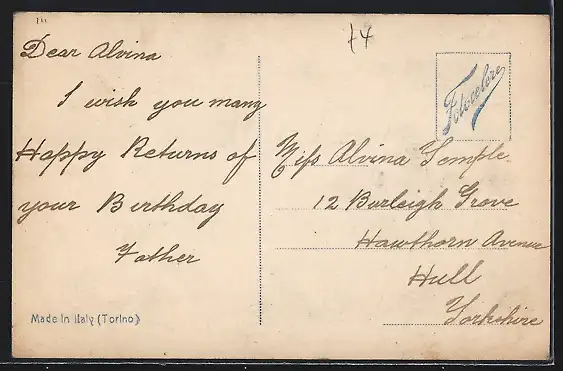 Dear Alvina
I wish you many
Happy Returns of
your Birthday
Father
Made in Italy (Torino)
14
Fotocelere
Miss Alvina Temple.
12 Burleigh Grove
Hawthorn Avenue
Hull
Yorkshire